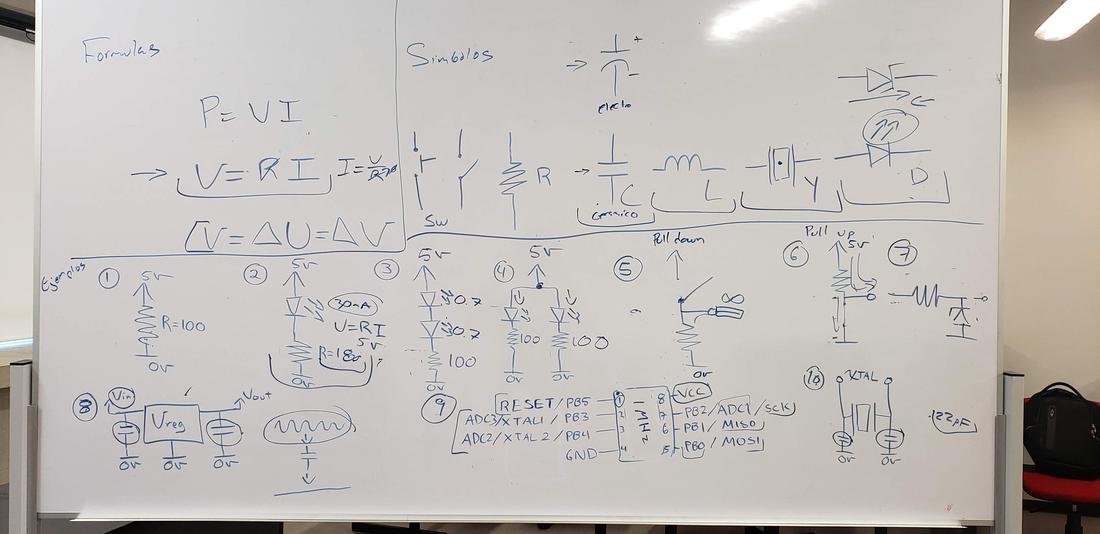 Formulas
P = V I
→ V = R I
I =
[V = ΔU = ΔV
Simbolos
+
-
electo
SW
R
C
ceramico
L
Y
D
Ejemplos
① 5v
R=100
0v
② 5v
30mA
V=RI
5v
0v
③ 5v
0.7
0.7
100
0v
④ 5v
100
100
0v
0v
⑤ Pull down
∞
0v
⑥ Pull up
5v
0v
⑦
⑧ Vin
Vreg
Vout
0v
0v
0v
⑨ RESET/PB5 1
ADC3/XTAL1/PB3 2
ADC2/XTAL2/PB4 3
GND 4
8 VCC
7 PB2/ADC1/SCK
6 PB1/MISO
5 PB0/MOSI
10 XTAL
22pF
0v
0v